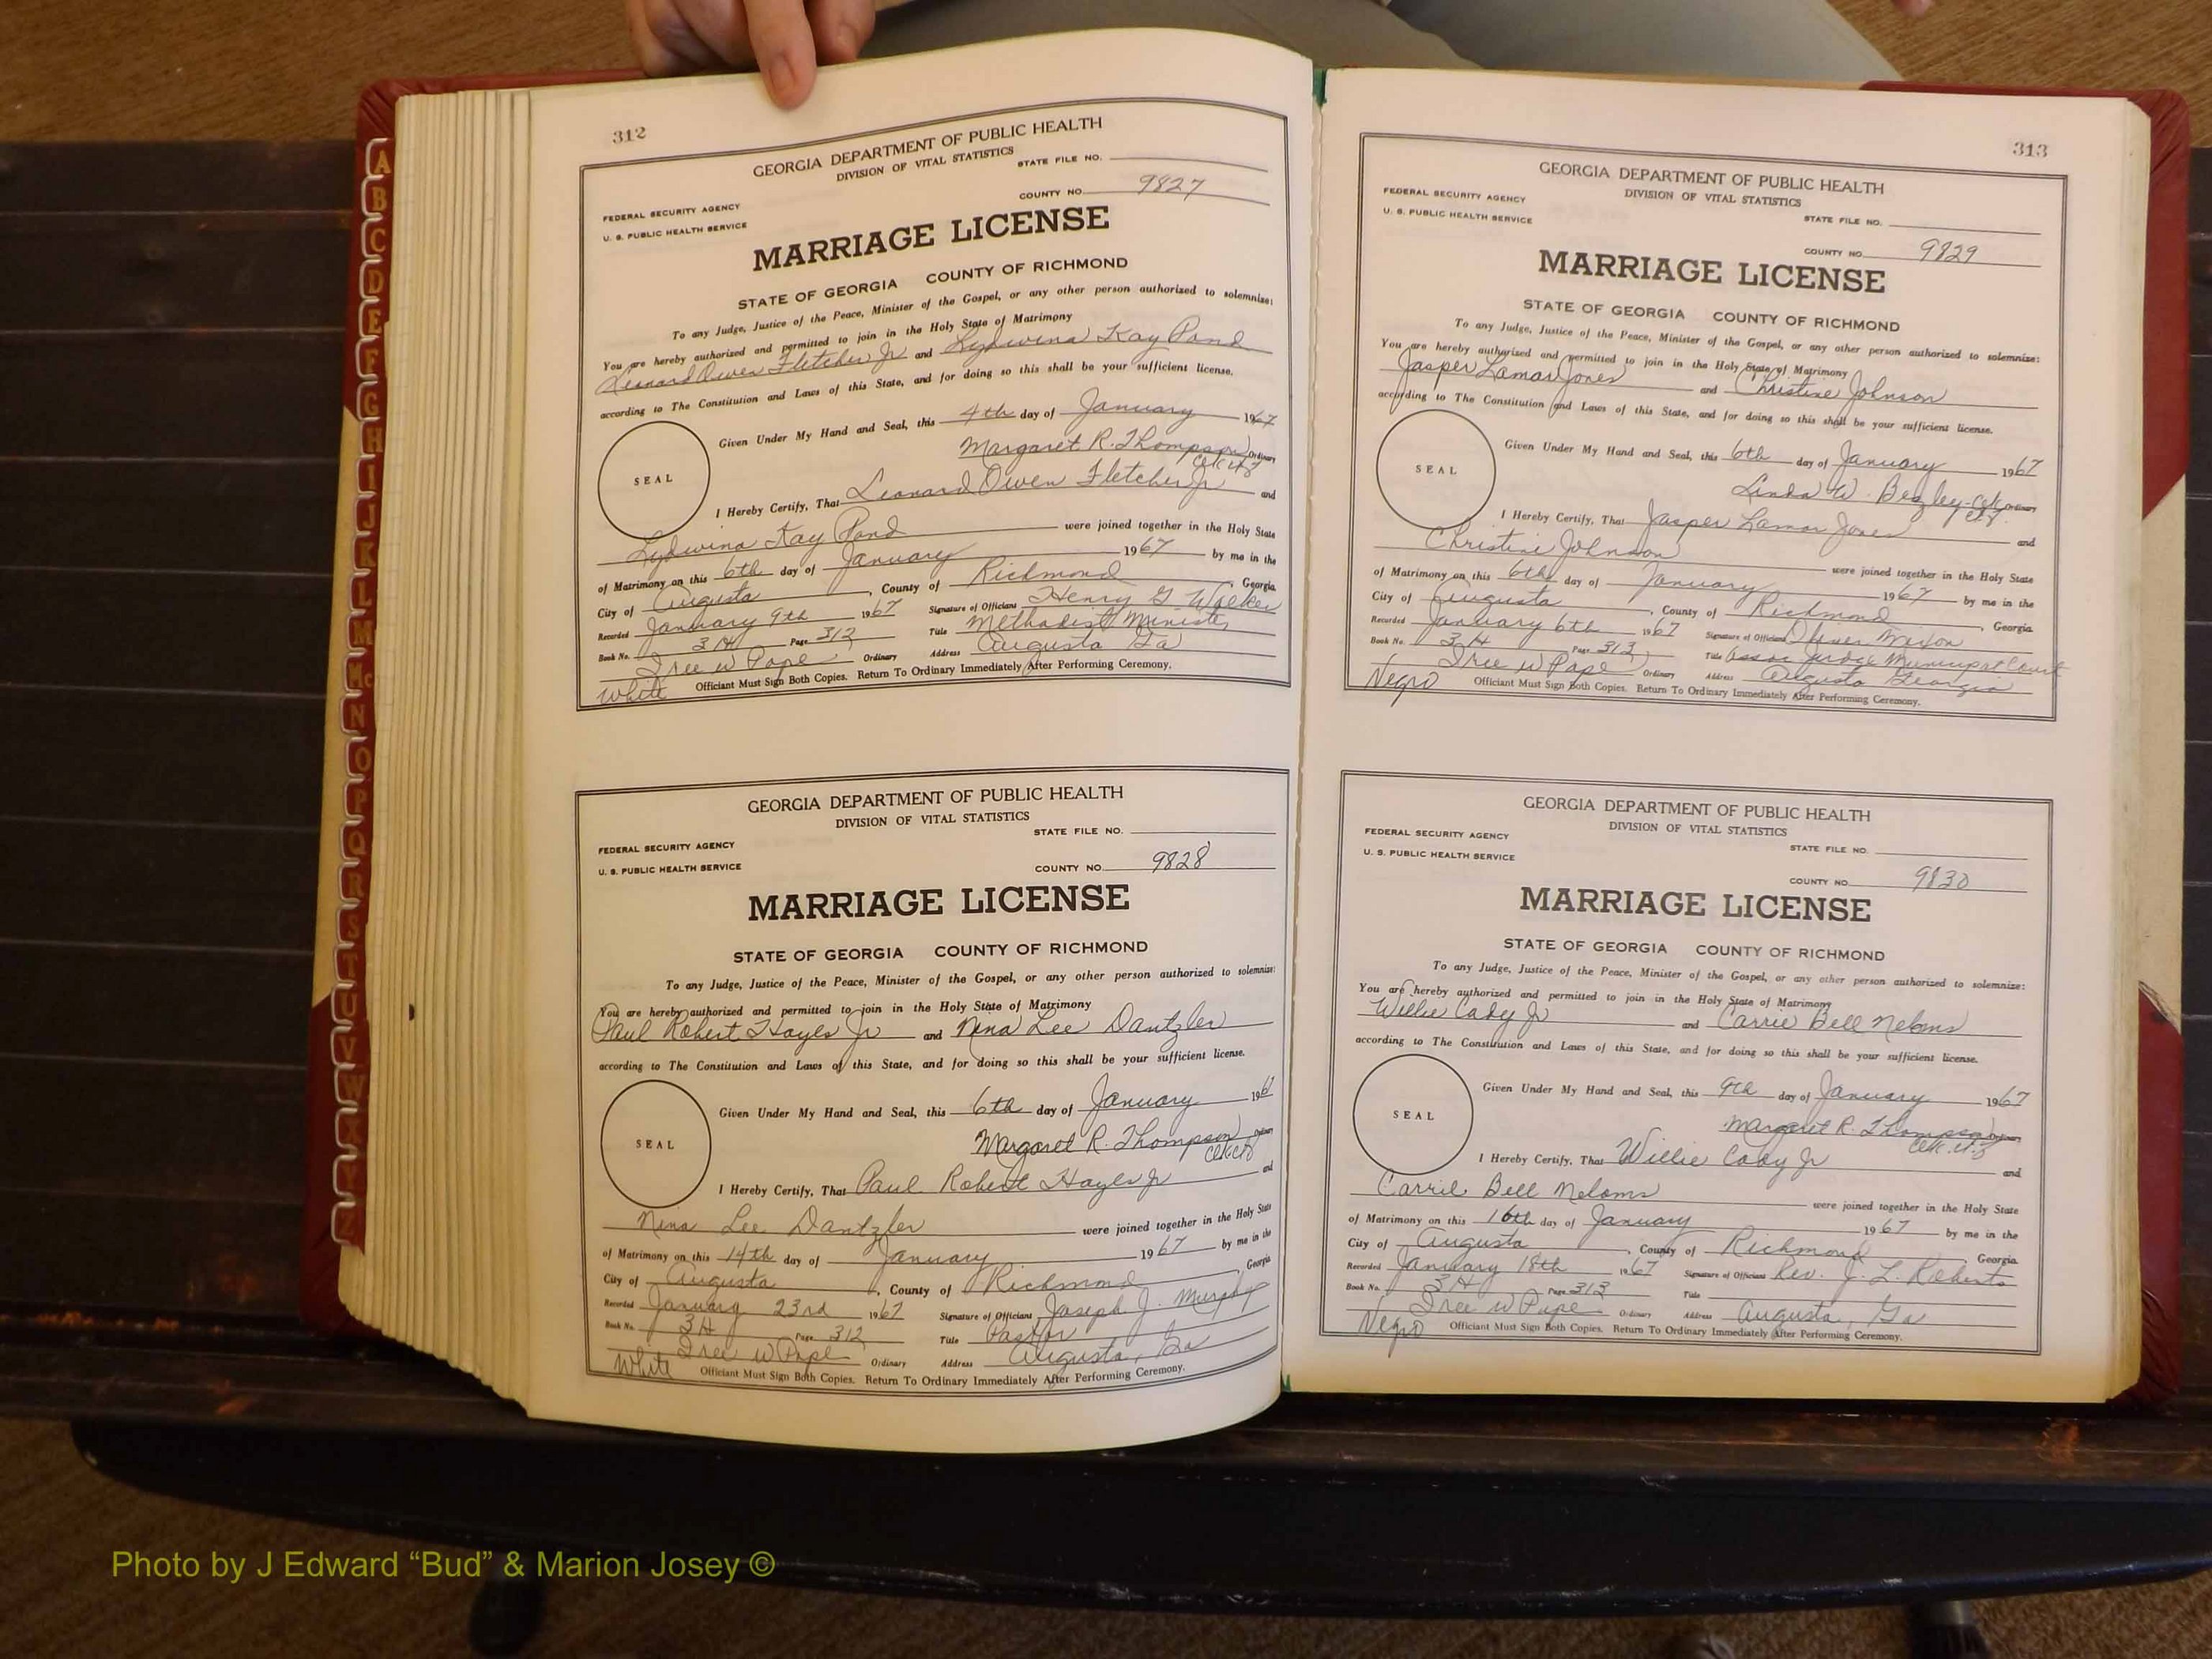 312
GEORGIA DEPARTMENT OF PUBLIC HEALTH
DIVISION OF VITAL STATISTICS
STATE FILE NO.
COUNTY NO. 9827
FEDERAL SECURITY AGENCY
U. S. PUBLIC HEALTH SERVICE
MARRIAGE LICENSE
STATE OF GEORGIA COUNTY OF RICHMOND
To any Judge, Justice of the Peace, Minister of the Gospel, or any other person authorized to solemnize:
You are hereby authorized and permitted to join in the Holy State of Matrimony
Leonard Owen Fletcher Jr and Lydwina Kay Pond
according to The Constitution and Laws of this State, and for doing so this shall be your sufficient license.
Given Under My Hand and Seal, this 4th day of January 1967
SEAL
Margaret R. Thompson Ordinary
I Hereby Certify, That Leonard Owen Fletcher Jr and
Lydwina Kay Pond were joined together in the Holy State
of Matrimony on this 6th day of January 1967 by me in the
City of Augusta, County of Richmond, Georgia
Recorded January 9th 1967 Signature of Officiant Henry G
Book No. 3H Page 312 Title Methodist Minister
Iree W Pope Ordinary Address Augusta Ga
White Officiant Must Sign Both Copies. Return To Ordinary Immediately After Performing Ceremony.
GEORGIA DEPARTMENT OF PUBLIC HEALTH
DIVISION OF VITAL STATISTICS
STATE FILE NO.
FEDERAL SECURITY AGENCY
U. S. PUBLIC HEALTH SERVICE
COUNTY NO. 9828
MARRIAGE LICENSE
STATE OF GEORGIA COUNTY OF RICHMOND
To any Judge, Justice of the Peace, Minister of the Gospel, or any other person authorized to solemnize:
You are hereby authorized and permitted to join in the Holy State of Matrimony
Paul Robert Hayes Jr and Nina Lee Dantzler
according to The Constitution and Laws of this State, and for doing so this shall be your sufficient license.
Given Under My Hand and Seal, this 6th day of January 196
SEAL
Margaret R. Thompson Ordinary
I Hereby Certify, That Paul Robert Hayes Jr and
Nina Lee Dantzler were joined together in the Holy State
of Matrimony on this 14th day of January 1967 by me in the
City of Augusta, County of Richmond Georgia
Recorded January 23rd 1967 Signature of Officiant Joseph J. Murphy
Book No. 3H Page 312 Title Pastor
Iree W Pope Ordinary Address Augusta, Ga
White Officiant Must Sign Both Copies. Return To Ordinary Immediately After Performing Ceremony.
313
GEORGIA DEPARTMENT OF PUBLIC HEALTH
DIVISION OF VITAL STATISTICS
FEDERAL SECURITY AGENCY
U. S. PUBLIC HEALTH SERVICE
STATE FILE NO.
COUNTY NO. 9829
MARRIAGE LICENSE
STATE OF GEORGIA COUNTY OF RICHMOND
To any Judge, Justice of the Peace, Minister of the Gospel, or any other person authorized to solemnize:
You are hereby authorized and permitted to join in the Holy State of Matrimony
Jasper Lamar Jones and Christine Johnson
according to The Constitution and Laws of this State, and for doing so this shall be your sufficient license.
Given Under My Hand and Seal, this 6th day of January 1967
SEAL
Linda W. Beazley Ordinary
I Hereby Certify, That Jasper Lamar Jones and
Christine Johnson were joined together in the Holy State
of Matrimony on this 6th day of January 1967 by me in the
City of Augusta, County of Richmond, Georgia
Recorded January 6th 1967 Signature of Officiant Oliver Mixon
Book No. 3H Page 313 Title Assoc Judge Municipal Court
Iree W Pope Ordinary Address Augusta Georgia
Negro Officiant Must Sign Both Copies. Return To Ordinary Immediately After Performing Ceremony.
GEORGIA DEPARTMENT OF PUBLIC HEALTH
DIVISION OF VITAL STATISTICS
FEDERAL SECURITY AGENCY
U. S. PUBLIC HEALTH SERVICE
STATE FILE NO.
COUNTY NO. 9830
MARRIAGE LICENSE
STATE OF GEORGIA COUNTY OF RICHMOND
To any Judge, Justice of the Peace, Minister of the Gospel, or any other person authorized to solemnize:
You are hereby authorized and permitted to join in the Holy State of Matrimony
Willie Cady Jr and Carrie Bell Neloms
according to The Constitution and Laws of this State, and for doing so this shall be your sufficient license.
Given Under My Hand and Seal, this 9th day of January 1967
SEAL
Margaret R. Thompson Ordinary
I Hereby Certify, That Willie Cady Jr and
Carrie Bell Neloms were joined together in the Holy State
of Matrimony on this 16th day of January 1967 by me in the
City of Augusta, County of Richmond, Georgia
Recorded January 18th 1967 Signature of Officiant Rev. J. L. Roberts
Book No. 3H Page 313 Title
Iree W Pope Ordinary Address Augusta, Ga
Negro Officiant Must Sign Both Copies. Return To Ordinary Immediately After Performing Ceremony.
A
B
C
D
E
F
G
H
I
J
K
L
M
Mc
N
O
P
Q
R
S
T
U
V
W
X
Y
Z
Photo by J Edward “Bud” & Marion Josey ©